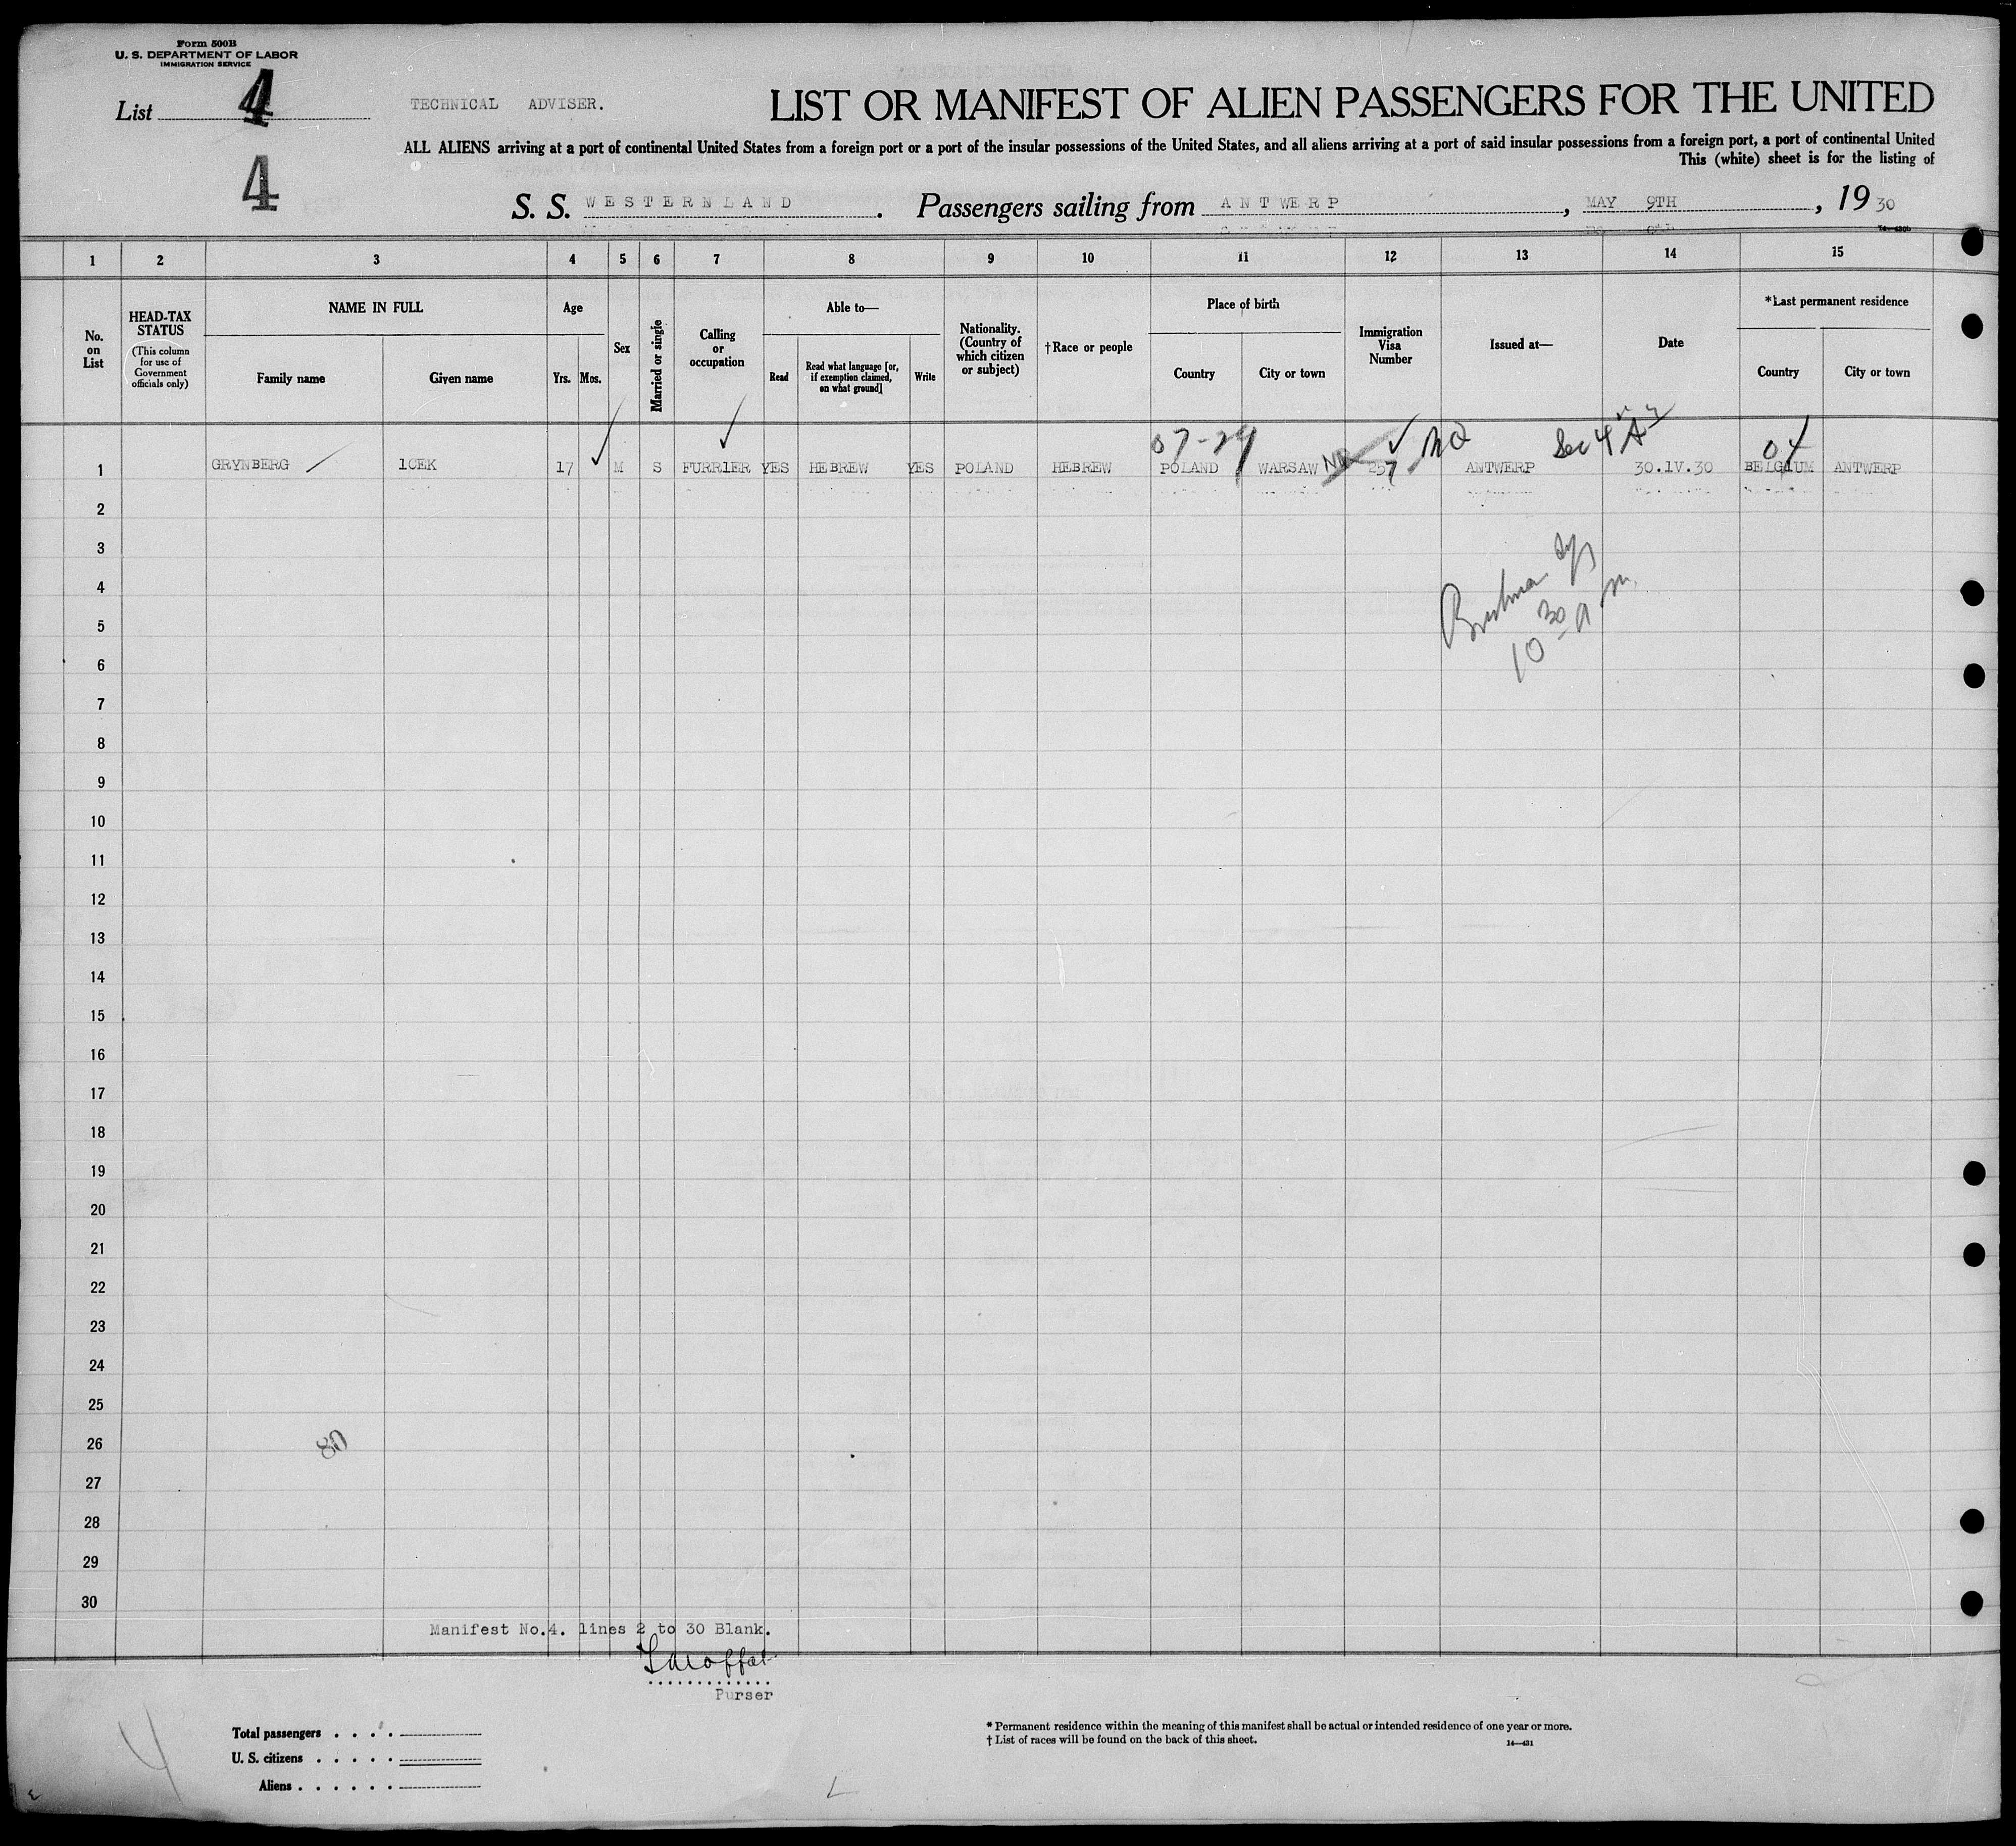 Form 500B
U. S. DEPARTMENT OF LABOR
IMMIGRATION SERVICE
List 4
4
TECHNICAL ADVISER.
LIST OR MANIFEST OF ALIEN PASSENGERS FOR THE UNITED
ALL ALIENS arriving at a port of continental United States from a foreign port or a port of the insular possessions of the United States, and all aliens arriving at a port of said insular possessions from a foreign port, a port of continental United
This (white) sheet is for the listing of
S. S. WESTERNLAND. Passengers sailing from ANTWERP, MAY 9TH, 19 30
14—430b
1 2 3 4 5 6 7 8 9 10 11 12 13 14 15
No. on List
HEAD-TAX STATUS
(This column for use of Government officials only)
NAME IN FULL
Family name
Given name
Age
Yrs. Mos.
Sex
Married or single
Calling or occupation
Able to—
Read
Read what language [or, if exemption claimed, on what ground]
Write
Nationality. (Country of which citizen or subject)
†Race or people
Place of birth
Country
City or town
Immigration Visa Number
Issued at—
Date
*Last permanent residence
Country
City or town
07-29 NQ Sec 4 A-3 04
1 GRYNBERG 1CEK 17 M S FURR1ER YES HEBREW YES POLAND HEBREW POLAND WARSAW 257 ANTWERP 30.1V.30 BELG1UM ANTWERP
2
3
4
5
10 30 A m.
6
7
8
9
10
11
12
13
14
15
16
17
18
19
20
21
22
23
24
25
26
80
27
28
29
30
Manifest No.4. lines 2 to 30 Blank.
Purser
Total passengers
U. S. citizens
Aliens
* Permanent residence within the meaning of this manifest shall be actual or intended residence of one year or more.
† List of races will be found on the back of this sheet.
14—431